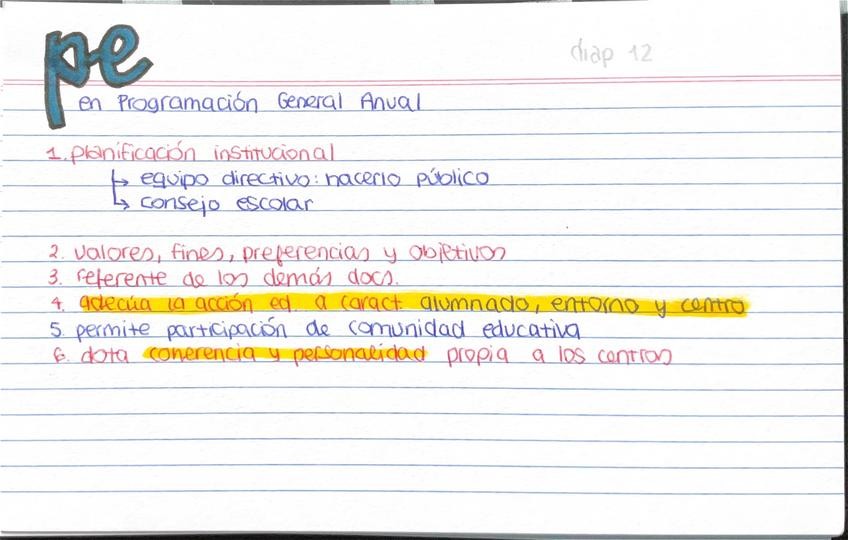 pe
diap 12
en Programación General Anual
1. planificación institucional
↳ equipo directivo: hacerlo público
↳ consejo escolar
2. valores, fines, preferencias y objetivos
3. referente de los demás docs.
4. adecúa la acción ed. a caract. alumnado, entorno y centro
5. permite participación de comunidad educativa
6. dota coherencia y personalidad propia a los centros